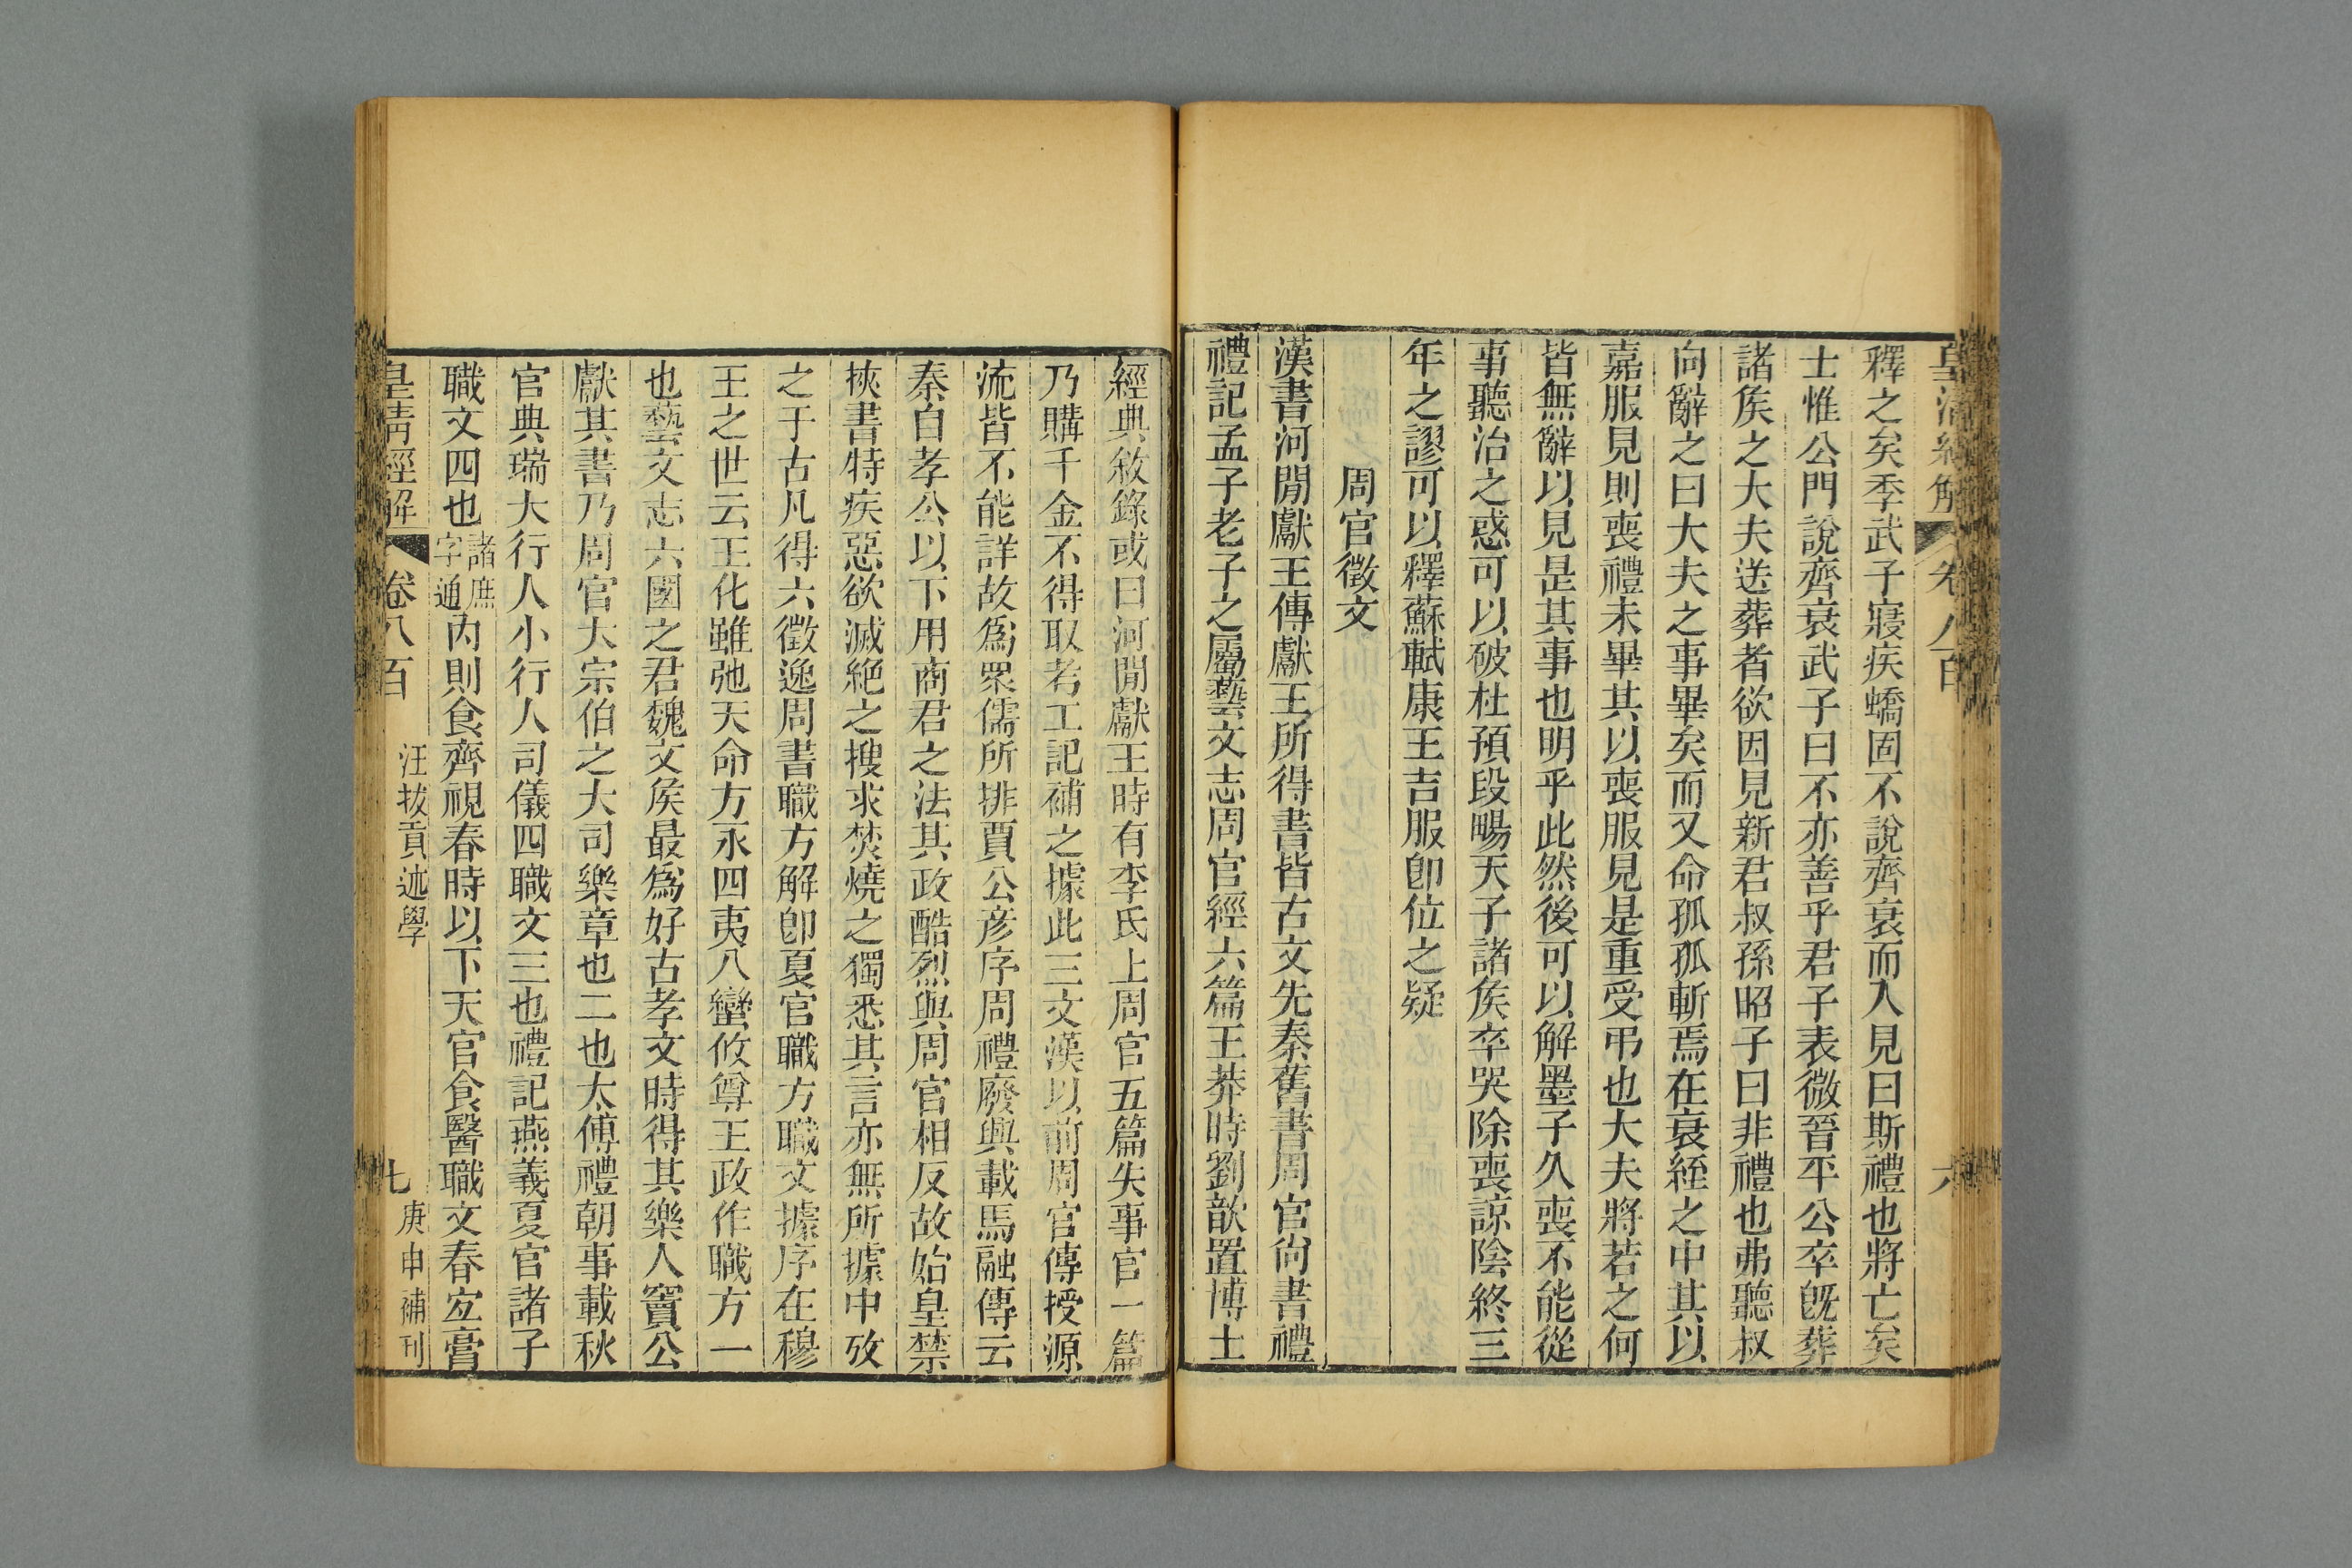 皇清經解 卷八百 六
釋之矣季武子寢疾蟜固不說齊衰而入見曰斯禮也將亡矣
士惟公門說齊衰武子曰不亦善乎君子表微晉平公卒旣葬
諸矦之大夫送葬者欲因見新君叔孫昭子曰非禮也弗聽叔
向辭之曰大夫之事畢矣而又命孤孤斬焉在衰絰之中其以
嘉服見則喪禮未畢其以喪服見是重受弔也大夫將若之何
皆無辭以見是其事也明乎此然後可以解墨子久喪不能從
事聽治之惑可以破杜預段暢天子諸矦卒哭除喪諒陰終三
年之謬可以釋蘇軾康王吉服卽位之疑
周官徵文
漢書河閒獻王傳獻王所得書皆古文先秦舊書周官尙書禮
禮記孟子老子之屬藝文志周官經六篇王莽時劉歆置博士
經典敘錄或曰河閒獻王時有李氏上周官五篇失事官一篇
乃購千金不得取考工記補之據此三文漢以前周官傳授源
流皆不能詳故爲眾儒所排賈公彥序周禮廢興載馬融傳云
秦自孝公以下用商君之法其政酷烈與周官相反故始皇禁
挾書特疾惡欲滅絕之搜求焚燒之獨悉其言亦無所據中攷
之于古凡得六徵逸周書職方解卽夏官職方職文據序在穆
王之世云王化雖弛天命方永四夷八蠻攸尊王政作職方一
也藝文志六國之君魏文矦最爲好古孝文時得其樂人竇公
獻其書乃周官大宗伯之大司樂章也二也太傅禮朝事載秋
官典瑞大行人小行人司儀四職文三也禮記燕義夏官諸子
職文四也諸庶字通內則食齊視春時以下天官食醫職文春宜膏
皇清經解 卷八百 汪拔貢述學 七 庚申補刊